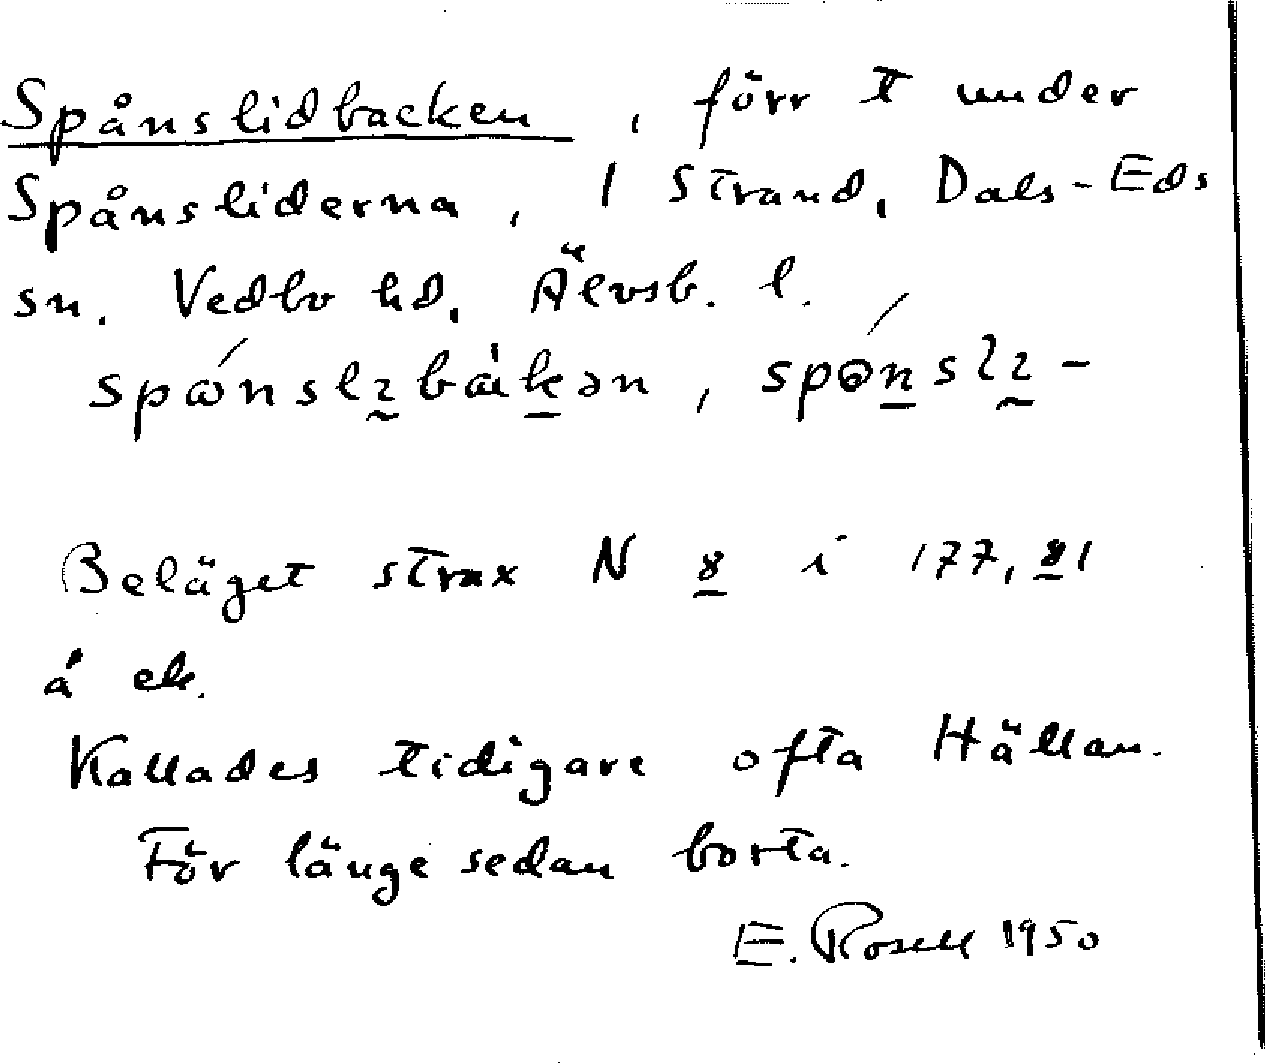 Spånslidbacken, förr t under
Spånsliderna, 1 Strand, Dals-Eds
sn. Vedbo hd, Älvsb. l.
Beläget strax N 8 i 177,81
å ek.
Kallades tidigare ofta Hällan.
För länge sedan borta.
E. Rosell 1950